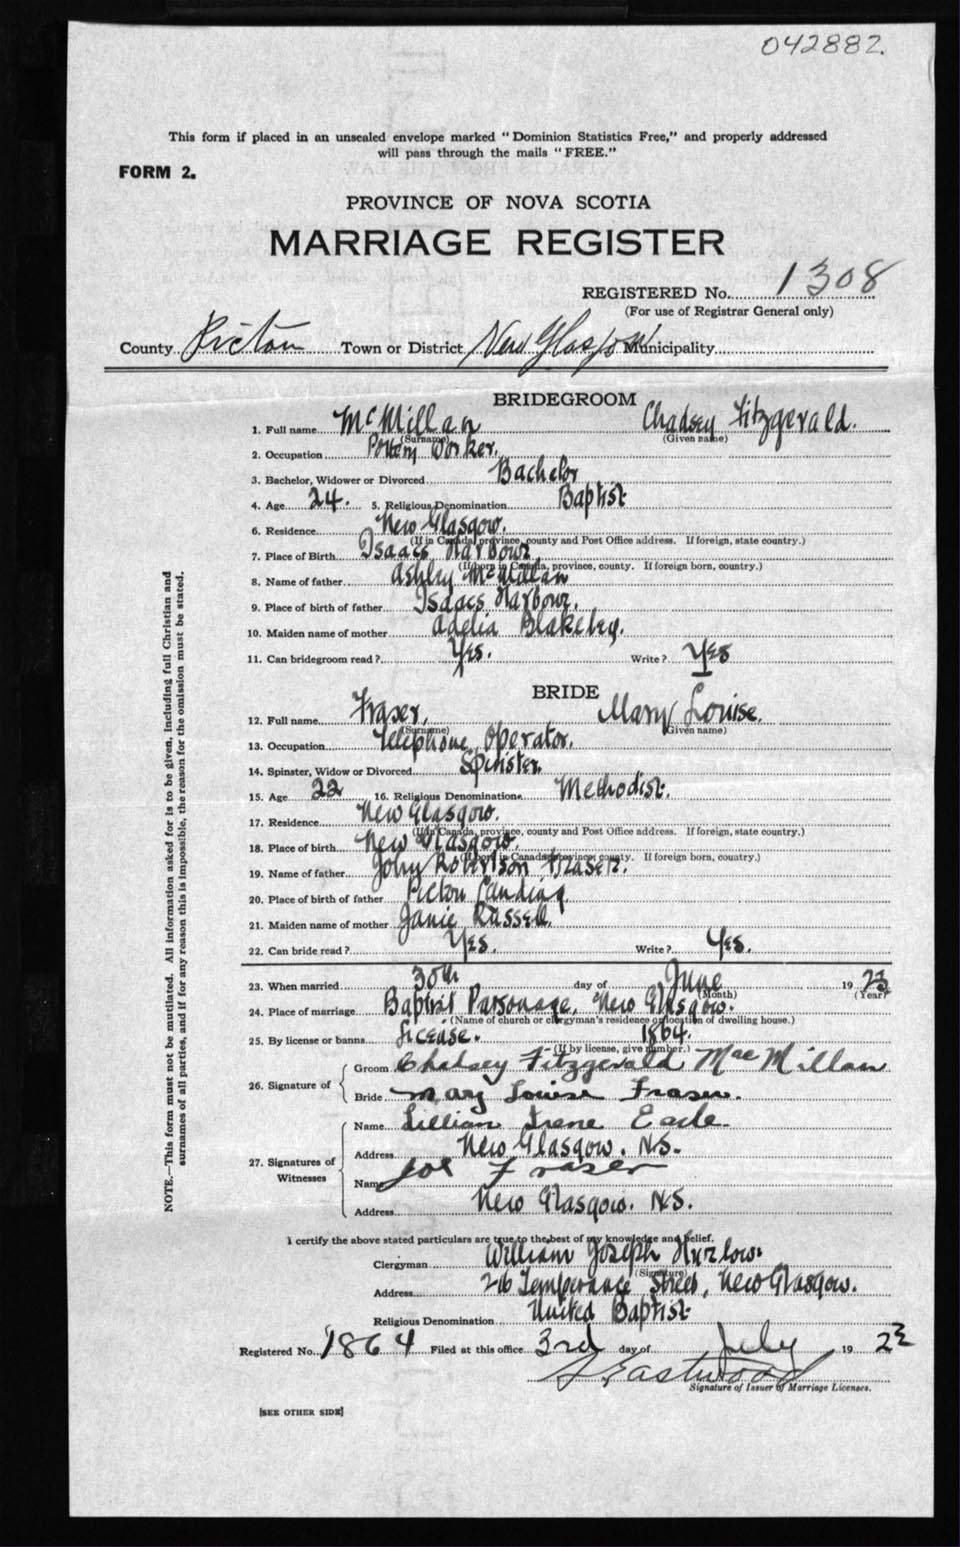 042882.
This form if placed in an unsealed envelope marked "Dominion Statistics Free," and properly addressed
will pass through the mails "FREE."
FORM 2.
PROVINCE OF NOVA SCOTIA
MARRIAGE REGISTER
REGISTERED No. 1308
(For use of Registrar General only)
County Pictou Town or District New Glasgow Municipality
BRIDEGROOM
1. Full name McMillan Chadsey Fitzgerald.
(Surname) (Given name)
2. Occupation Pottery Worker.
3. Bachelor, Widower or Divorced Bachelor
4. Age 24. 5. Religious Denomination Baptist
6. Residence New Glasgow.
(If in Canada, province, county and Post Office address. If foreign, state country.)
7. Place of Birth Isaacs Harbour
(If born in Canada, province, county. If foreign born, country.)
8. Name of father Ashley McMillan
9. Place of birth of father Isaacs Harbour.
10. Maiden name of mother Adelia Blakeley.
11. Can bridegroom read? Yes. Write? Yes
BRIDE
12. Full name Fraser, Mary Louise.
(Surname) (Given name)
13. Occupation Telephone Operator.
14. Spinster, Widow or Divorced Spinster.
15. Age 22 16. Religious Denomination Methodist.
17. Residence New Glasgow.
(If in Canada, province, county and Post Office address. If foreign, state country.)
18. Place of birth New Glasgow.
(If born in Canada province, county. If foreign born, country.)
19. Name of father John Robertson Fraser.
20. Place of birth of father Pictou Landing
21. Maiden name of mother Janie Russell.
22. Can bride read? Yes. Write? Yes.
23. When married 30th day of June 1923
(Month) (Year)
24. Place of marriage Baptist Parsonage, New Glasgow.
(Name of church or clergyman's residence or location of dwelling house.)
25. By license or banns License. 1864.
(If by license, give number.)
26. Signature of Groom Chadsey Fitzgerald MacMillan
Bride Mary Louise Fraser.
27. Signatures of Witnesses Name Lillian Irene Eade.
Address New Glasgow. N.S.
Name Joe Fraser
Address New Glasgow. N.S.
I certify the above stated particulars are true to the best of my knowledge and belief.
Clergyman William Joseph
(Signature)
Address 26 Temperance Street, New Glasgow.
Religious Denomination United Baptist
Registered No. 1864 Filed at this office 3rd day of July 1923
Eastwood
Signature of Issuer of Marriage Licenses.
[SEE OTHER SIDE]
NOTE.—This form must not be mutilated. All information asked for is to be given, including full Christian and
surnames of all parties, and if for any reason this is impossible, the reason for the omission must be stated.